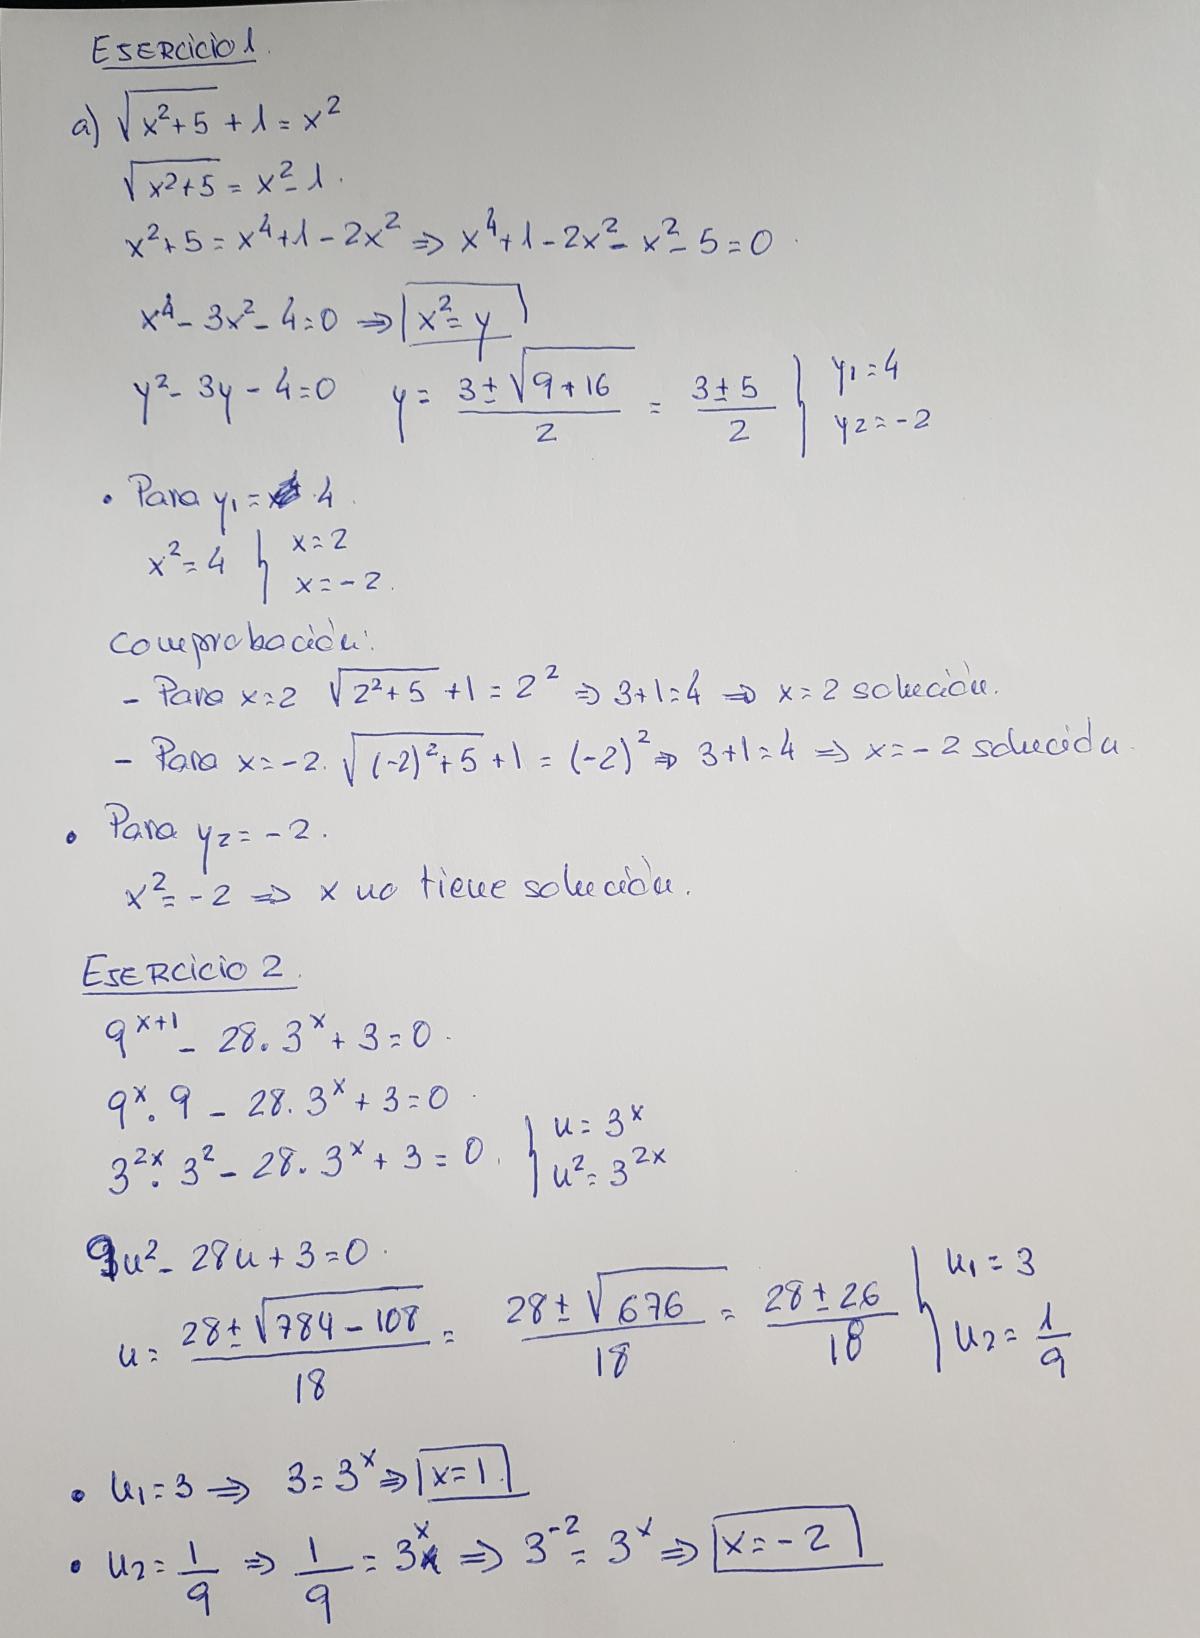 EJERCICIO 1.
a) √(x²+5) + 1 = x²
√(x²+5) = x² - 1.
x²+5 = x⁴+1-2x² ⇒ x⁴+1-2x²-x²-5=0.
x⁴-3x²-4=0 ⇒ x²=y
y²-3y-4=0 y = (3±√(9+16))/2 = (3±5)/2 } y₁=4 y₂=-2
• Para y₁= 4.
x²=4 } x=2 x=-2.
Comprobación:
- Para x=2 √(2²+5) +1 = 2² ⇒ 3+1=4 ⇒ x=2 solución.
- Para x=-2. √((-2)²+5) +1 = (-2)² ⇒ 3+1=4 ⇒ x=-2 solución.
• Para y₂=-2.
x²=-2 ⇒ x no tiene solución.
EJERCICIO 2.
9ˣ⁺¹ - 28·3ˣ + 3 = 0.
9ˣ·9 - 28·3ˣ + 3 = 0.
3²ˣ·3² - 28·3ˣ + 3 = 0. } u=3ˣ u²=3²ˣ
9u² - 28u + 3 = 0.
u = (28±√(784-108))/18 = (28±√676)/18 = (28±26)/18 } u₁=3 u₂=1/9
• u₁=3 ⇒ 3=3ˣ ⇒ x=1.
• u₂=1/9 ⇒ 1/9=3ˣ ⇒ 3⁻²=3ˣ ⇒ x=-2